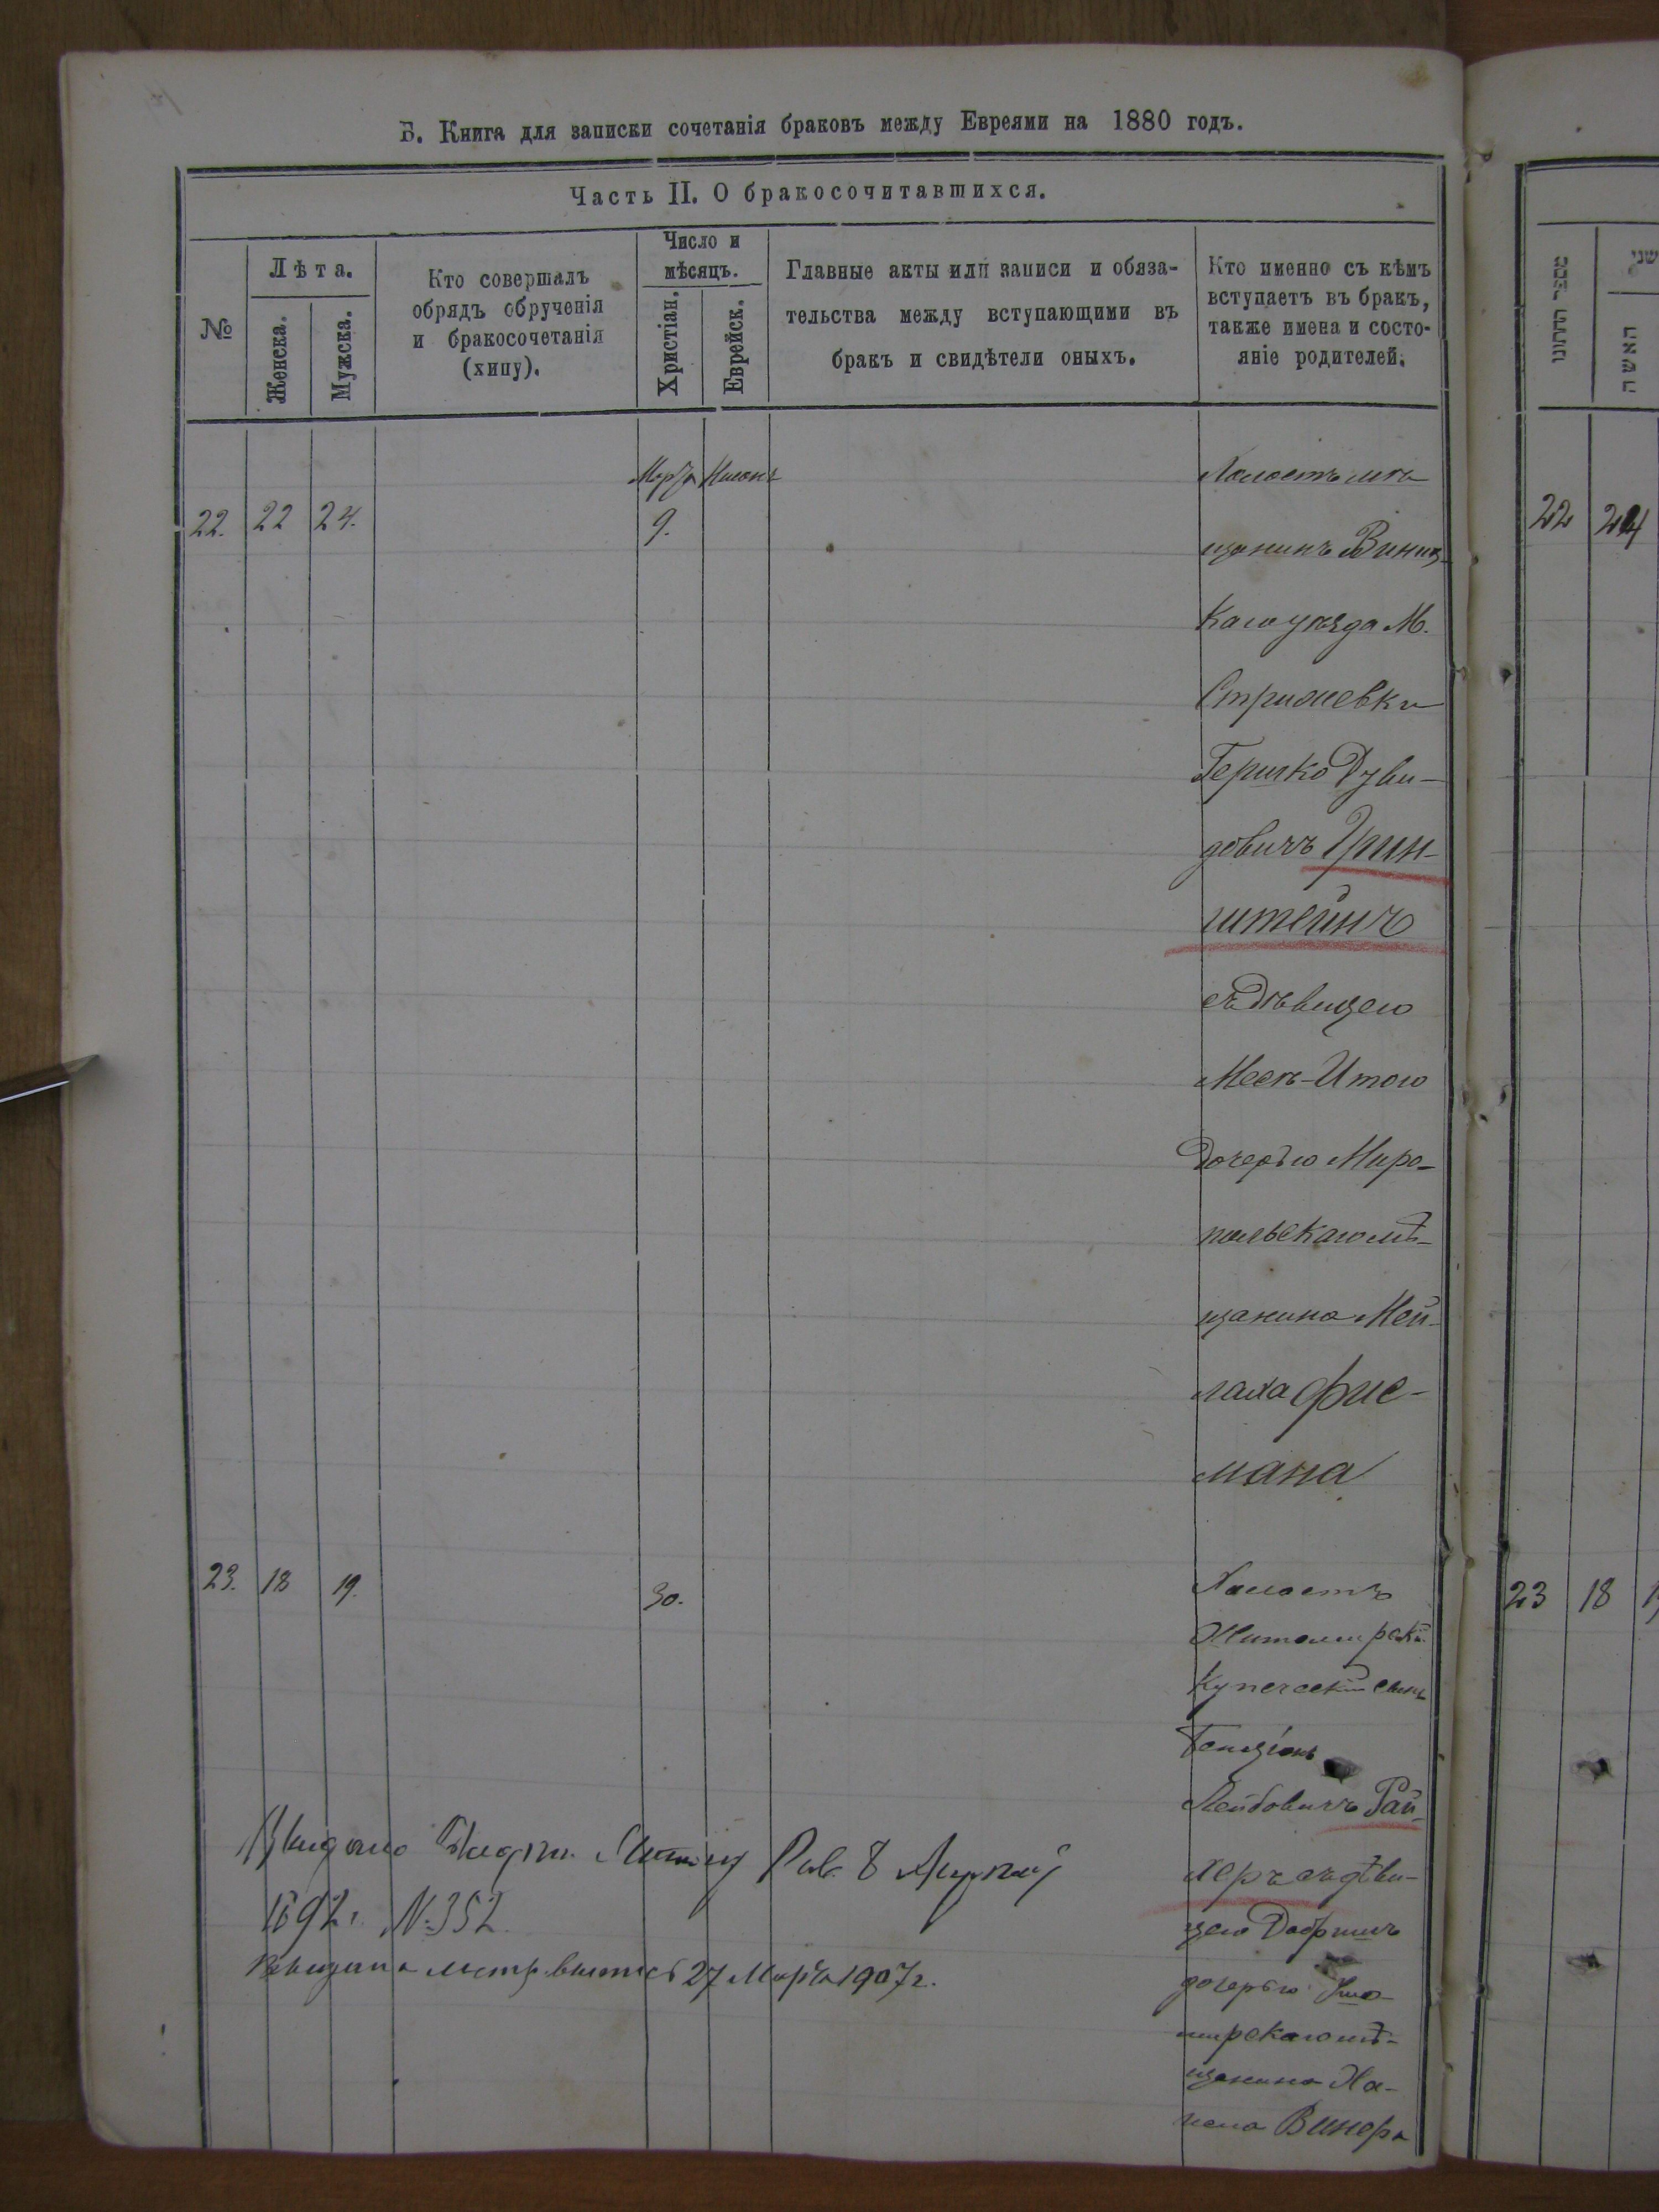 Б. Книга для записки сочетанія браковъ между Евреями на 1880 годъ.
Часть II. О бракосочитавшихся.
№
Лѣта.
Женска.
Мужска.
Кто совершалъ
обрядъ обрученія
и бракосочетанія
(хипу).
Число и
мѣсяцъ.
Христіан.
Еврейск.
Главные акты или записи и обяза-
тельства между вступающими въ
бракъ и свидѣтели оныхъ.
Кто именно съ кѣмъ
вступаетъ въ бракъ,
также имена и состо-
яніе родителей.
Марта
22. 22 24. 9.
Холостъ мѣ
щанинъ Винниц
каго уѣзда М.
Стрижевки
Гершко Дуви-
довичъ Грин-
штейнъ
съ дѣвицею
Мееѣ-Итою
дочерью Миро-
польскаго мѣ-
щанина Мей-
лаха Фис-
мана
23. 18 19. 30.
Холостъ
Житомирскій
Купеческій сынъ
Бенціонъ
Лейбовичъ Рай-
херъ съ дѣви-
цею
дочерью Жито-
мирскаго мѣ-
щанина Ха-
Винера
1892 г. №352
27 Марта 1907 г.
מספר החתונו
שני
האשה
22 24
23 18